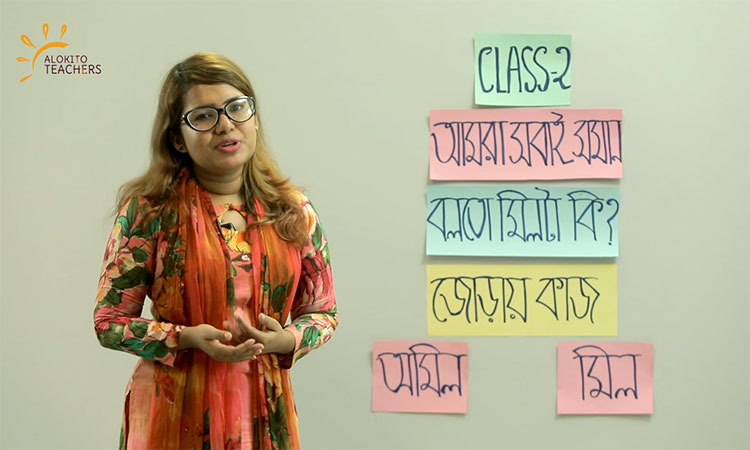 ALOKITO
TEACHERS
CLASS-2
আমরা সবাই সমান
বলতো মিলটা কি?
জোড়ায় কাজ
অমিল মিল